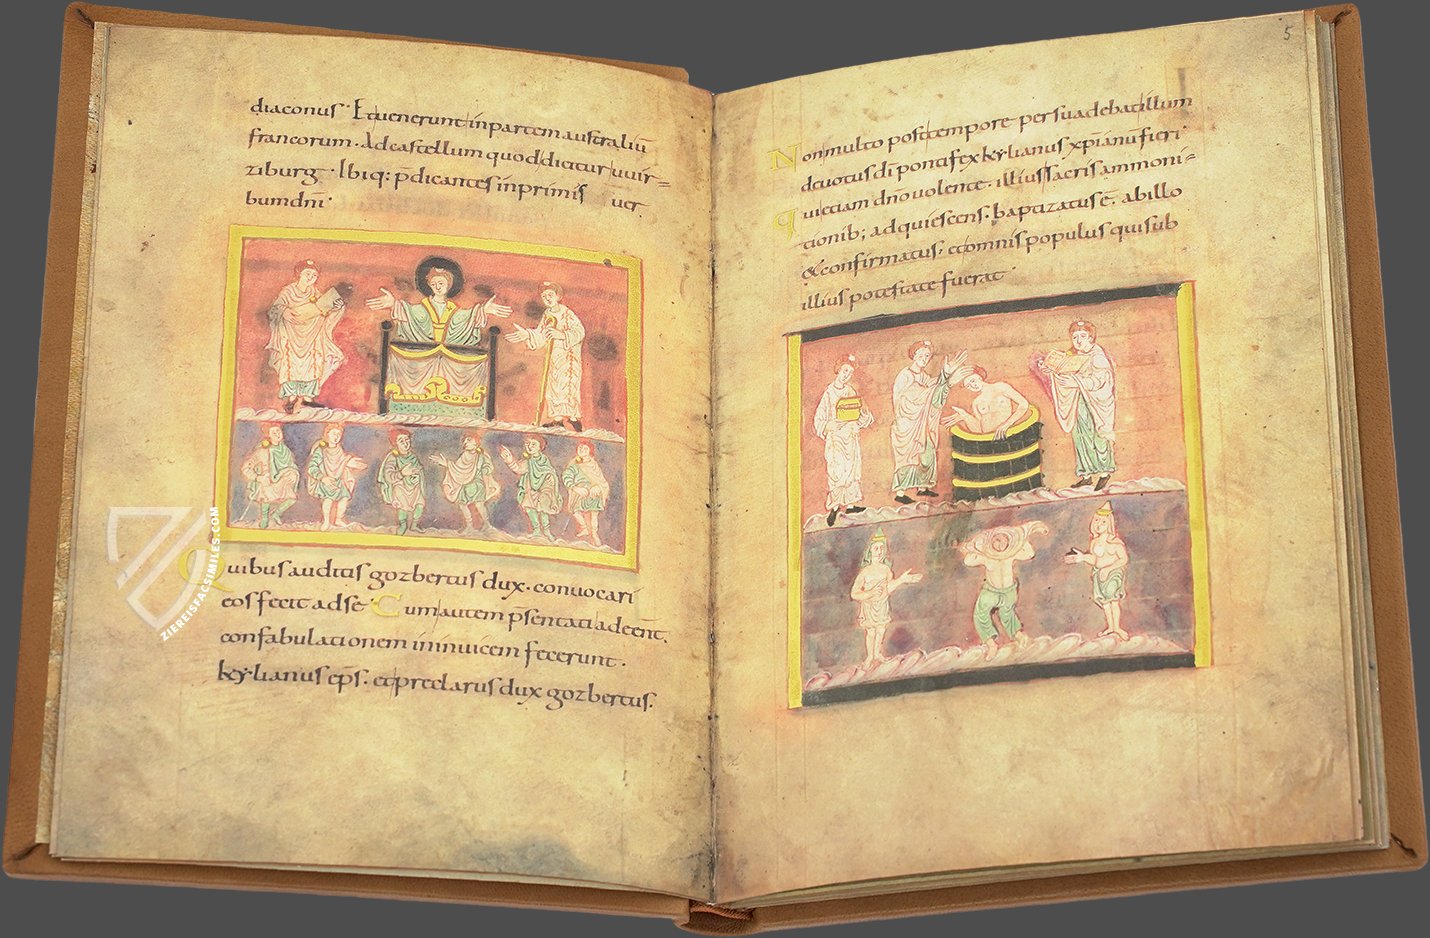 diaconus· Etuenerunt inpartem australiū
francorum. Adcastellum quod dicitur uuir-
ziburg· Ibiq: p̄dicantes inprimis uer
bumdn̄i·
Quibusauditis gozbertus dux· conuocari
eos fecit adse· Cum autem p̄sentati adeēnt.
confabulationem ininuicem fecerunt·
kẏlianus ep̄s· et preclarus dux gozbertus.
5
Non multo post tempore persuadebat illum
deuotus dī pontifex kẏlianus xp̄ianū fieri·
quietiam dn̄o uolente· illius sacris ammoni-
tionib; adquiescens· baptizatus ē· abillo
& confirmatus; et omnis populus quisub
illius potestate fuerat·
ZIEREISFACSIMILES.COM